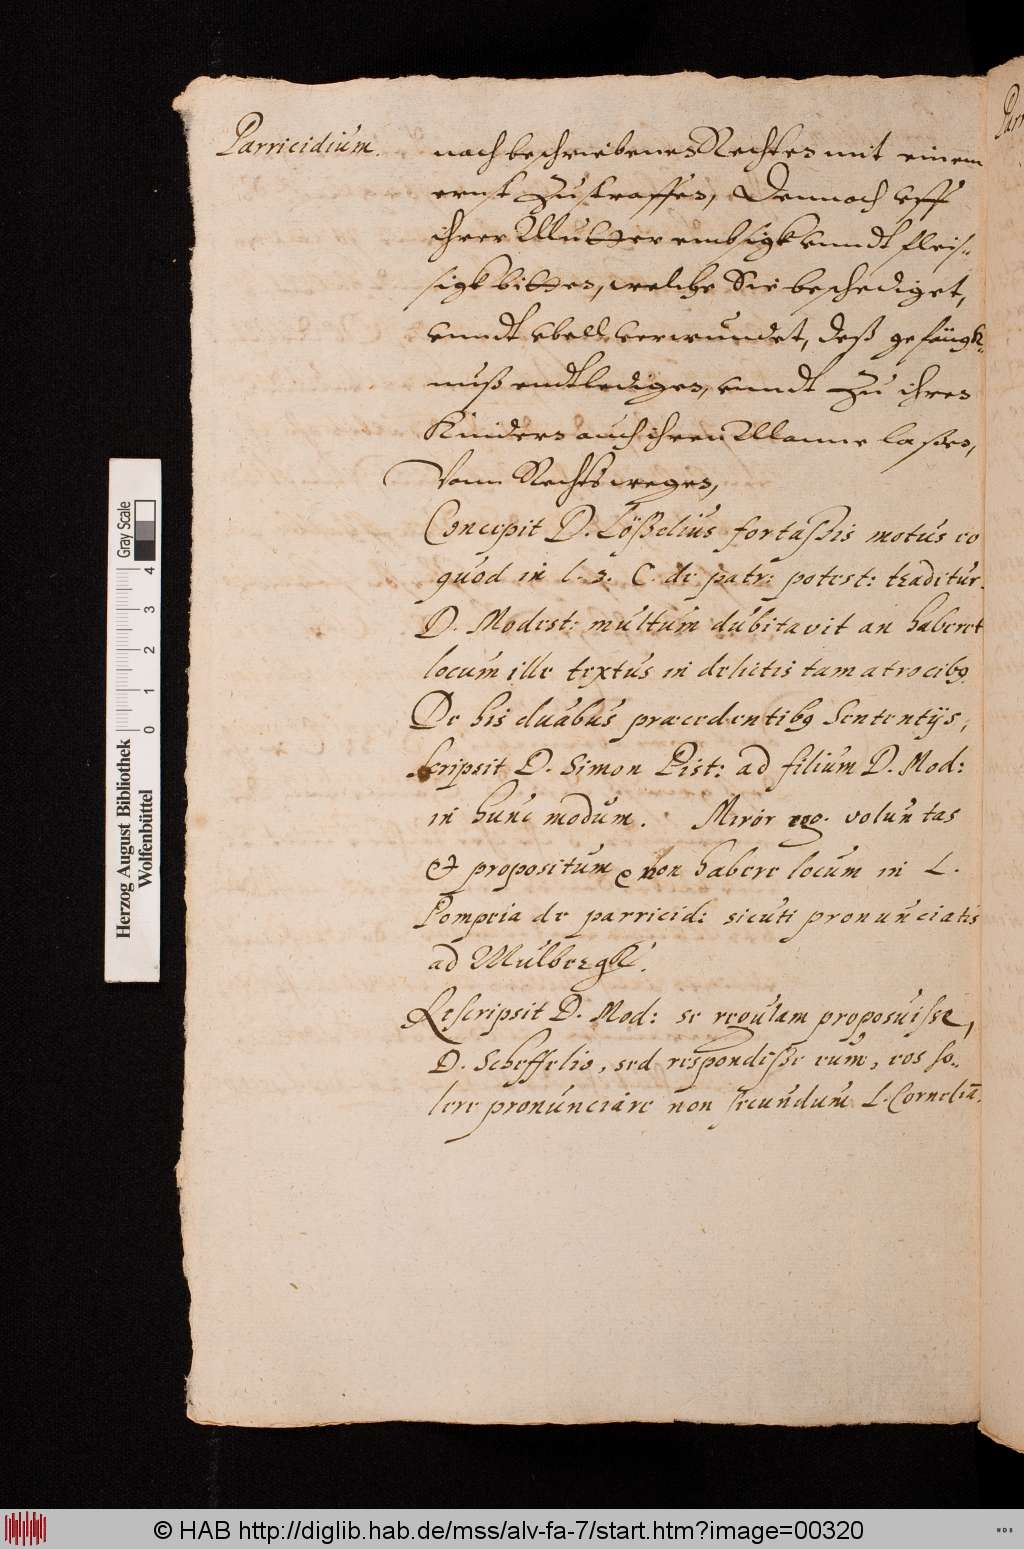 Parricidium.
nach beschriebenen Rechten mit einem
ernst zu straffen, Dennoch uff
ihrer Mutter embsigk unndt fleis-
sigk bitten, welche Sie beschediget,
unndt ubell verwundet, deß gefängk-
nuß endtledigen, unndt zu ihren
Kindern auch ihren Manne laßen,
Vonn Rechts wegen,
Concepit D. Lößelius fortassis motus eo
quod in l. 3. C. de patr: potest: traditur.
D. Modest: multum dubitavit an haberet
locum ille textus in delictis tam atrocibq
De his duabus præcedentibq Sententijs,
scripsit D. Simon Pist: ad filium D. Mod:
in hunc modum. Miror ego. voluntas
et propositum non habere locum in L.
Pompeia de parricid: sicuti pronunciatis
ad Mulbergk.
Rescripsit D. Mod: se regulam proposuisse,
D. Scheffelio, sed respondisse eum, eos so-
lere pronunciare non secundum L. Corneliā.
Herzog August Bibliothek
Wolfenbüttel
0 1 2 3 4
Gray Scale
© HAB http://diglib.hab.de/mss/alv-fa-7/start.htm?image=00320